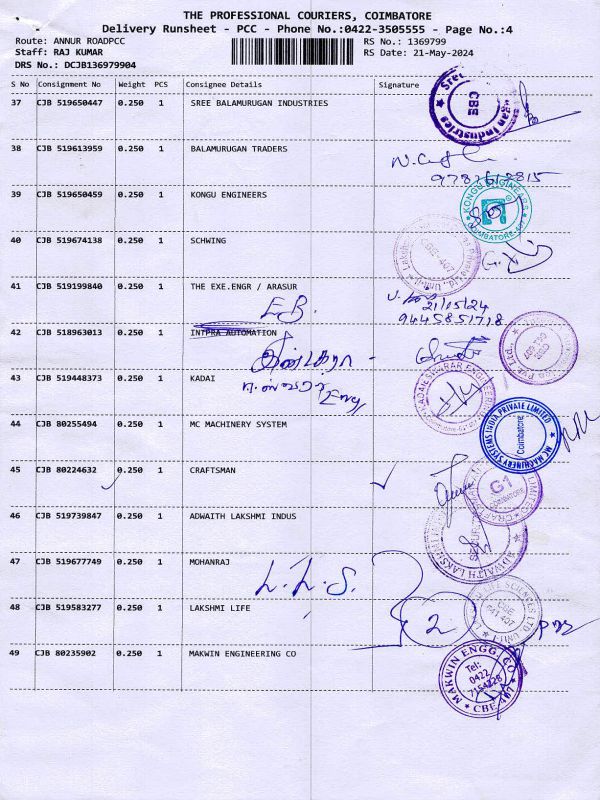 THE PROFESSIONAL COURIERS, COIMBATORE
Delivery Runsheet - PCC - Phone No.:0422-3505555 - Page No.:4
Route: ANNUR ROADPCC RS No.: 1369799
Staff: RAJ KUMAR RS Date: 21-May-2024
DRS No.: DCJB136979904
S No Consignment No Weight PCS Consignee Details Signature
37 CJB 519650447 0.250 1 SREE BALAMURUGAN INDUSTRIES
Sree gan Industries CBE
38 CJB 519613959 0.250 1 BALAMURUGAN TRADERS
39 CJB 519650459 0.250 1 KONGU ENGINEERS
KONGU ENGINEERS
40 CJB 519674138 0.250 1 SCHWING
41 CJB 519199840 0.250 1 THE EXE.ENGR / ARASUR
21/05/24
EB. 9445851718
42 CJB 518963013 0.250 1 INTPRA AUTOMATION
43 CJB 519448373 0.250 1 KADAI
44 CJB 80255494 0.250 1 MC MACHINERY SYSTEM
MC MACHINERY SYSTEMS INDIA PRIVATE LIMITED Coimbatore
45 CJB 80224632 0.250 1 CRAFTSMAN
G1 COIMBATORE
46 CJB 519739847 0.250 1 ADWAITH LAKSHMI INDUS
ADWAITH LAKSHMI
47 CJB 519677749 0.250 1 MOHANRAJ
L.L.S.
48 CJB 519583277 0.250 1 LAKSHMI LIFE
2
CBE 641 407
49 CJB 80235902 0.250 1 MAKWIN ENGINEERING CO
MAKWIN ENGG. CO Tel: 0422 CBE